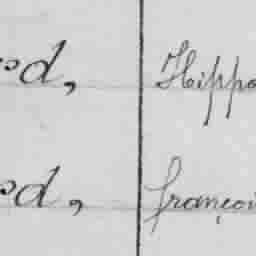 d, Hippo
d, françoi